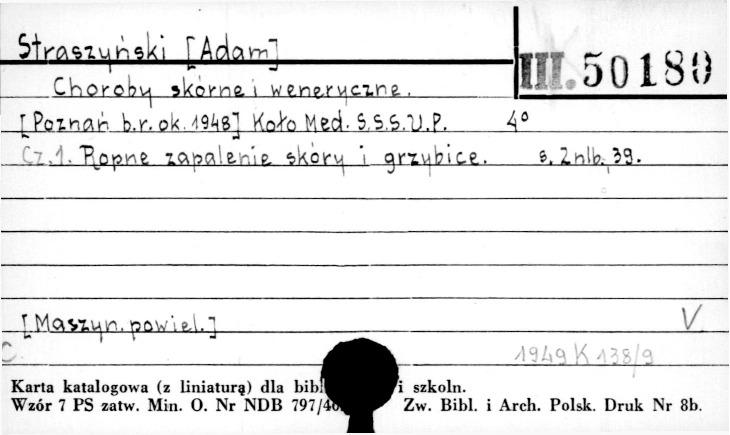 Straszyński [Adam]
III. 50180
Choroby skórne i weneryczne.
[Poznań b.r. ok. 1948] Koło Med. S.S.S.U.P. 4°
Cz. 1. Ropne zapalenie skóry i grzybice. s. 2 nlb., 39.
[Maszyn. powiel.] V
C. 1949 K 138/9
Karta katalogowa (z liniaturą) dla bibl i szkoln.
Wzór 7 PS zatw. Min. O. Nr NDB 797/46 Zw. Bibl. i Arch. Polsk. Druk Nr 8b.